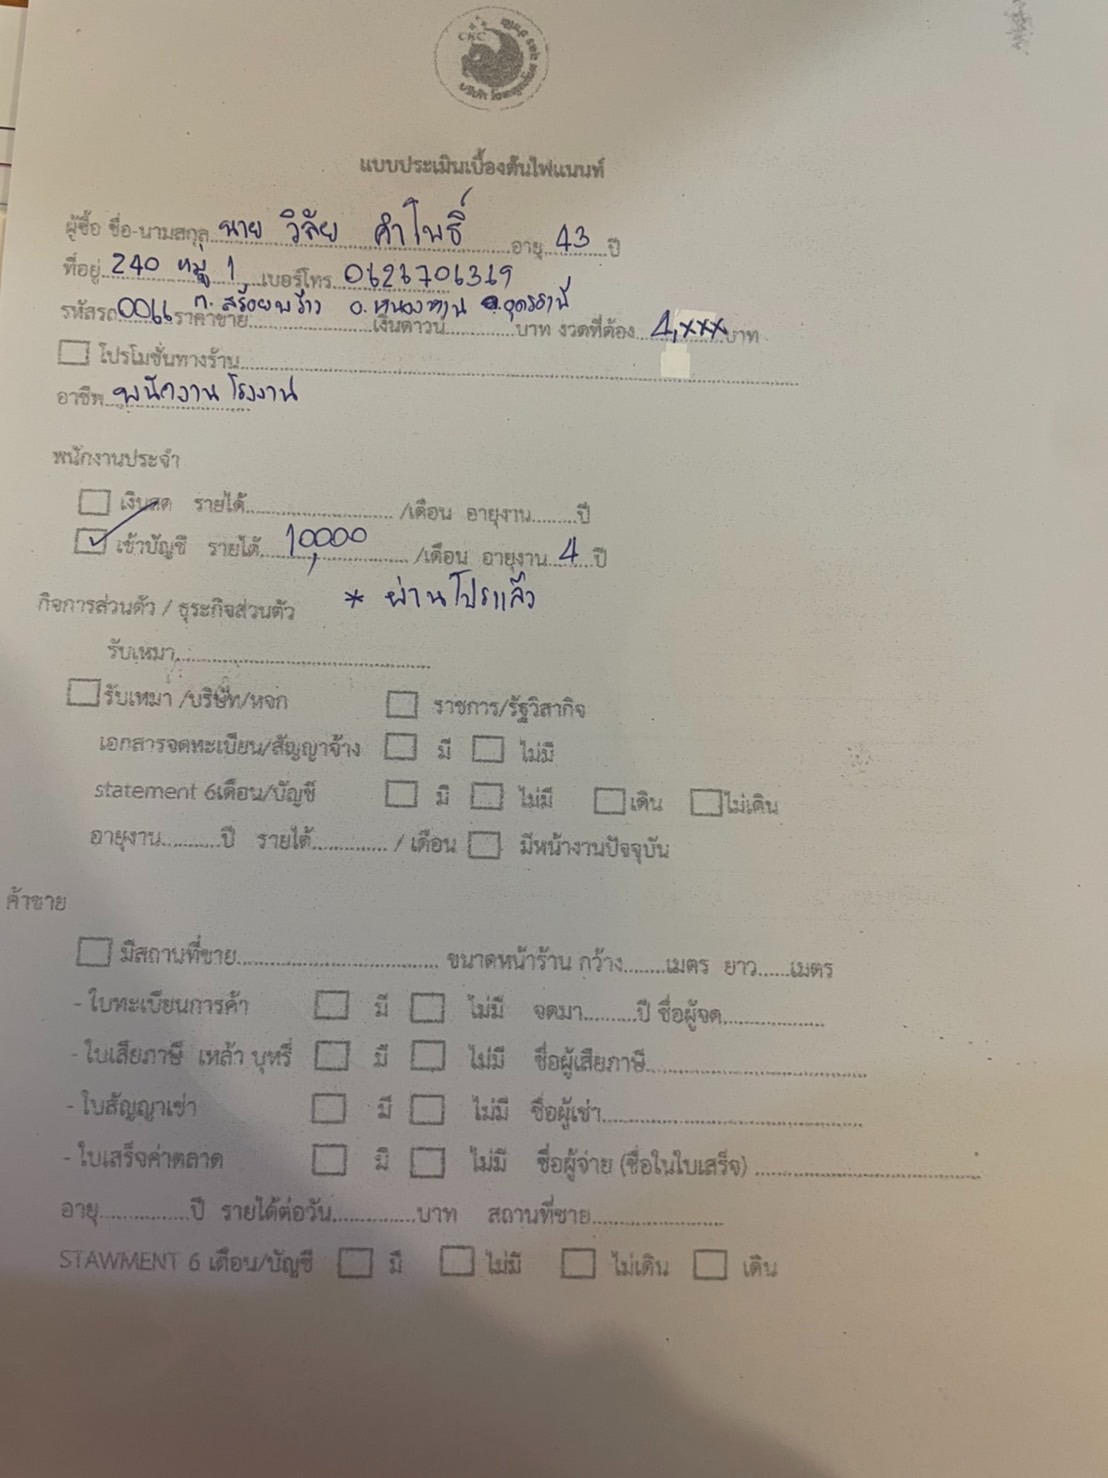 CKC
แบบประเมินเบื้องต้นไฟแนนท์
ผู้ซื้อ ชื่อ-นามสกุล นาย วิลัย คำโพธิ์ อายุ 43 ปี
ที่อยู่ 240 หมู่ 1 เบอร์โทร 0626706319
ต. สร้อยพร้าว อ. หนองหาน จ. อุดรธานี
รหัสรถ 0066 ราคาขาย เงินดาวน์ บาท งวดที่ต้อง 4,xxx บาท
โปรโมชั่นทางร้าน
อาชีพ พนักงานโรงงาน
พนักงานประจำ
เงินสด รายได้ /เดือน อายุงาน ปี
เข้าบัญชี รายได้ 10,000 /เดือน อายุงาน 4 ปี
* ผ่านโปรแล้ว
กิจการส่วนตัว / ธุระกิจส่วนตัว
รับเหมา
รับเหมา /บริษัท/หจก ราชการ/รัฐวิสากิจ
เอกสารจดทะเบียน/สัญญาจ้าง มี ไม่มี
statement 6เดือน/บัญชี มี ไม่มี เดิน ไม่เดิน
อายุงาน ปี รายได้ / เดือน มีหน้างานปัจจุบัน
ค้าขาย
มีสถานที่ขาย ขนาดหน้าร้าน กว้าง เมตร ยาว เมตร
- ใบทะเบียนการค้า มี ไม่มี จดมา ปี ชื่อผู้จด
- ใบเสียภาษี เหล้า บุหรี่ มี ไม่มี ชื่อผู้เสียภาษี
- ใบสัญญาเช่า มี ไม่มี ชื่อผู้เช่า
- ใบเสร็จค่าตลาด มี ไม่มี ชื่อผู้จ่าย (ชื่อในใบเสร็จ)
อายุ ปี รายได้ต่อวัน บาท สถานที่ขาย
STAWMENT 6 เดือน/บัญชี มี ไม่มี ไม่เดิน เดิน